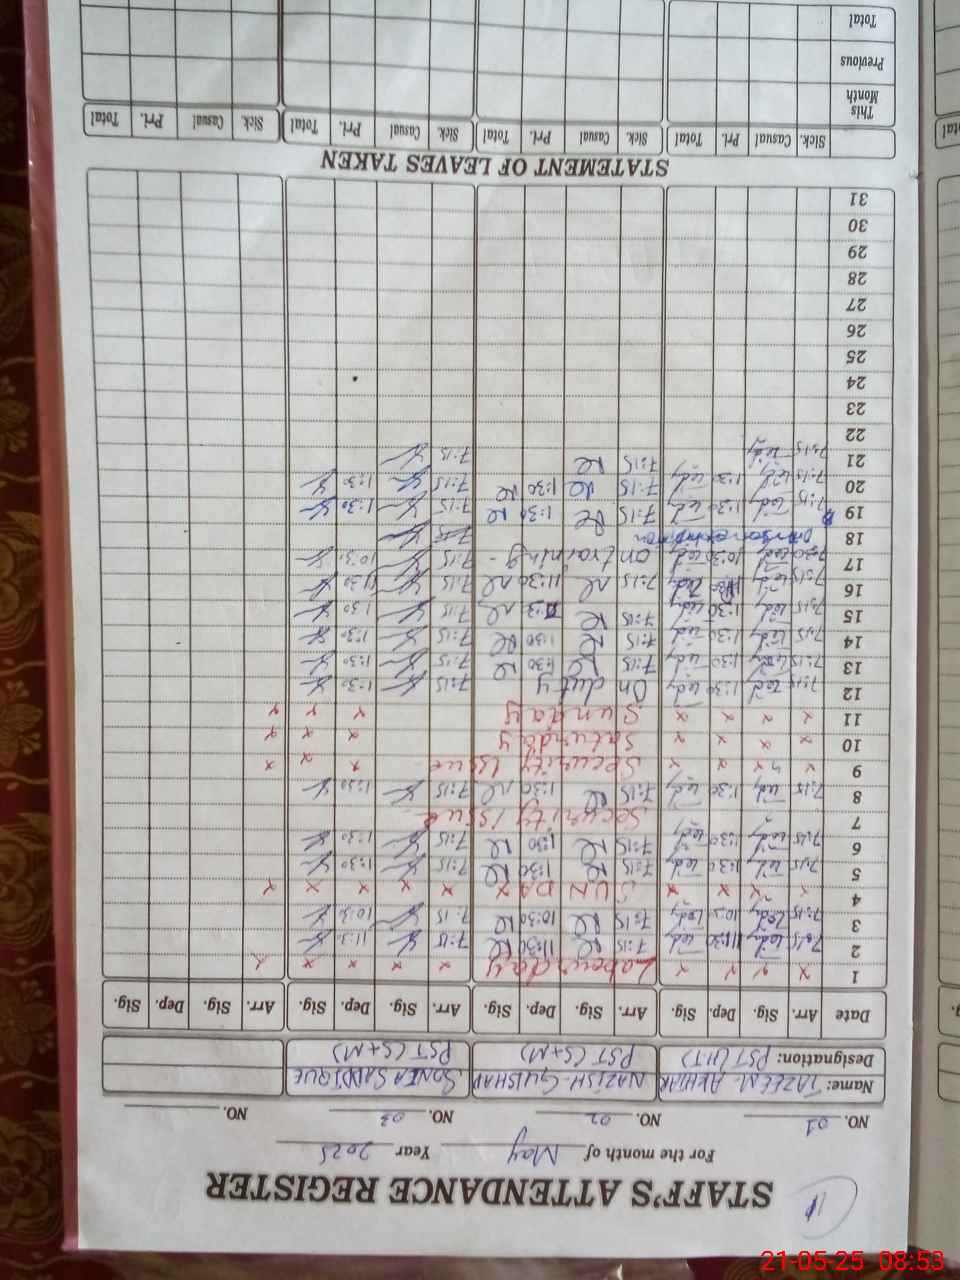 STAFF'S ATTENDANCE REGISTER
For the month of May Year 2025
NO. 01 NO. 02 NO. 03 NO.
Name: TAZEEM AKHTAR NAZISH GULSHAD SONIA SADDIQUE
Designation: PST (HT) PST (S+M) PST (S+M)
Date Arr. Sig. Dep. Sig. Arr. Sig. Dep. Sig. Arr. Sig. Dep. Sig. Arr. Sig. Dep. Sig.
1 x x x x Labour day x x x x x
2 7:15 11:30 7:15 11:30 7:15 11:3
3 7:15 10:3 7:15 10:30 7:15 10:3
4 x x x x SUNDAY x x x x x
5 7:15 1:30 7:15 1:30 7:15 1:30
6 7:15 1:30 7:15 1:30 7:15 1:30
7 Security Issue
8 7:15 1:30 7:15 1:30 7:15 1:30
9 x x x x Security Issue x x x
10 x x x x Saturday x x x
11 x x x x Sunday x x x
12 7:15 1:30 On duty 7:15 1:30
13 7:15 1:30 7:15 1:30 7:15 1:30
14 7:15 1:30 7:15 1:30 7:15 1:30
15 7:15 1:30 7:15 7:15 1:30
16 7:15 7:15 11:30 7:15 11:30
17 7:30 10:30 on training - 7:15 10:3
18
19 7:15 1:30 7:15 1:30 7:15 1:30
20 7:15 1:30 7:15 1:30 7:15 1:30
21 7:15 7:15 7:15
22
23
24
25
26
27
28
29
30
31
STATEMENT OF LEAVES TAKEN
Sick. Casual Pri. Total Sick. Casual Pri. Total Sick. Casual Pri. Total Sick. Casual Pri. Total
This Month
Previous
Total
21-05-25 08:53